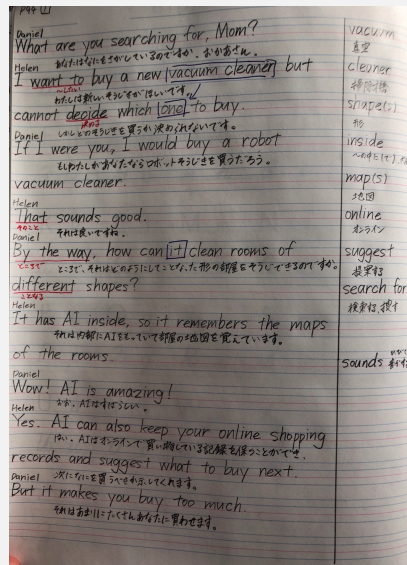 P44 [1]
Daniel
What are you searching for, Mom?
あなたはなにをさがしているのですか、おかあさん。
Helen
I want to buy a new vacuum cleaner but
〜したい
わたしは新しいそうじきがほしいです。
cannot decide which one to buy.
決める
しかしどのそうじきを買うか決められないです。
Daniel
If I were you, I would buy a robot
もしわたしがあなたならロボットそうじきを買うだろう。
vacuum cleaner.
Helen
That sounds good.
そのこと
それは良いですね。
Daniel
By the way, how can it clean rooms of
ところで
ところで、それはどのようにしてことなった形の部屋をそうじできるのですか。
different shapes?
ことなる
Helen
It has AI inside, so it remembers the maps
それは内部にAIをもっていて部屋の地図を覚えています。
of the rooms.
Daniel
Wow! AI is amazing!
なお、AIはすばらしい。
Helen
Yes. AI can also keep your online shopping
はい。AIはオンラインで買い物している記録を保つことができ、
records and suggest what to buy next.
次になにを買うべきか示してくれます。
Daniel
But it makes you buy too much.
それはあまりにたくさんあなたに買わせます。
vacuum
真空
cleaner
掃除機
shape(s)
形
inside
map(s)
地図
online
オンライン
suggest
提案する
search for
検索する、捜す
sounds